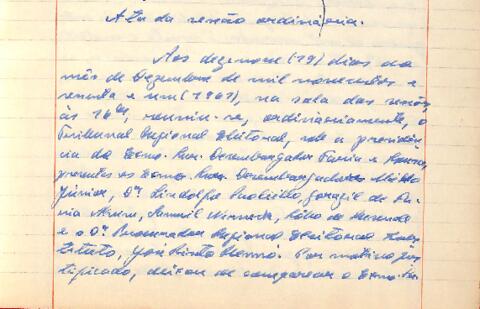 Ata da sessão ordinária.
Aos dezenove (19) dias do
mês de Dezembro de mil novecentos e
sessenta e um (1961), na sala das sessões,
às 16 hs, reuniu-se, ordinariamente, o
Tribunal Regional Eleitoral, sob a presidên
cia do Exmo. Snr. Desembargador Faria e Sousa,
presentes os Exmo. Snrs. Desembargadores
Júnior, Drs. Lindolfo Gonzaga de
e o Dr. Procurador Regional Eleitoral Subs
tituto, José Pinto. Por motivo jus
tificado, deixou de comparecer o Exmo. Sr.